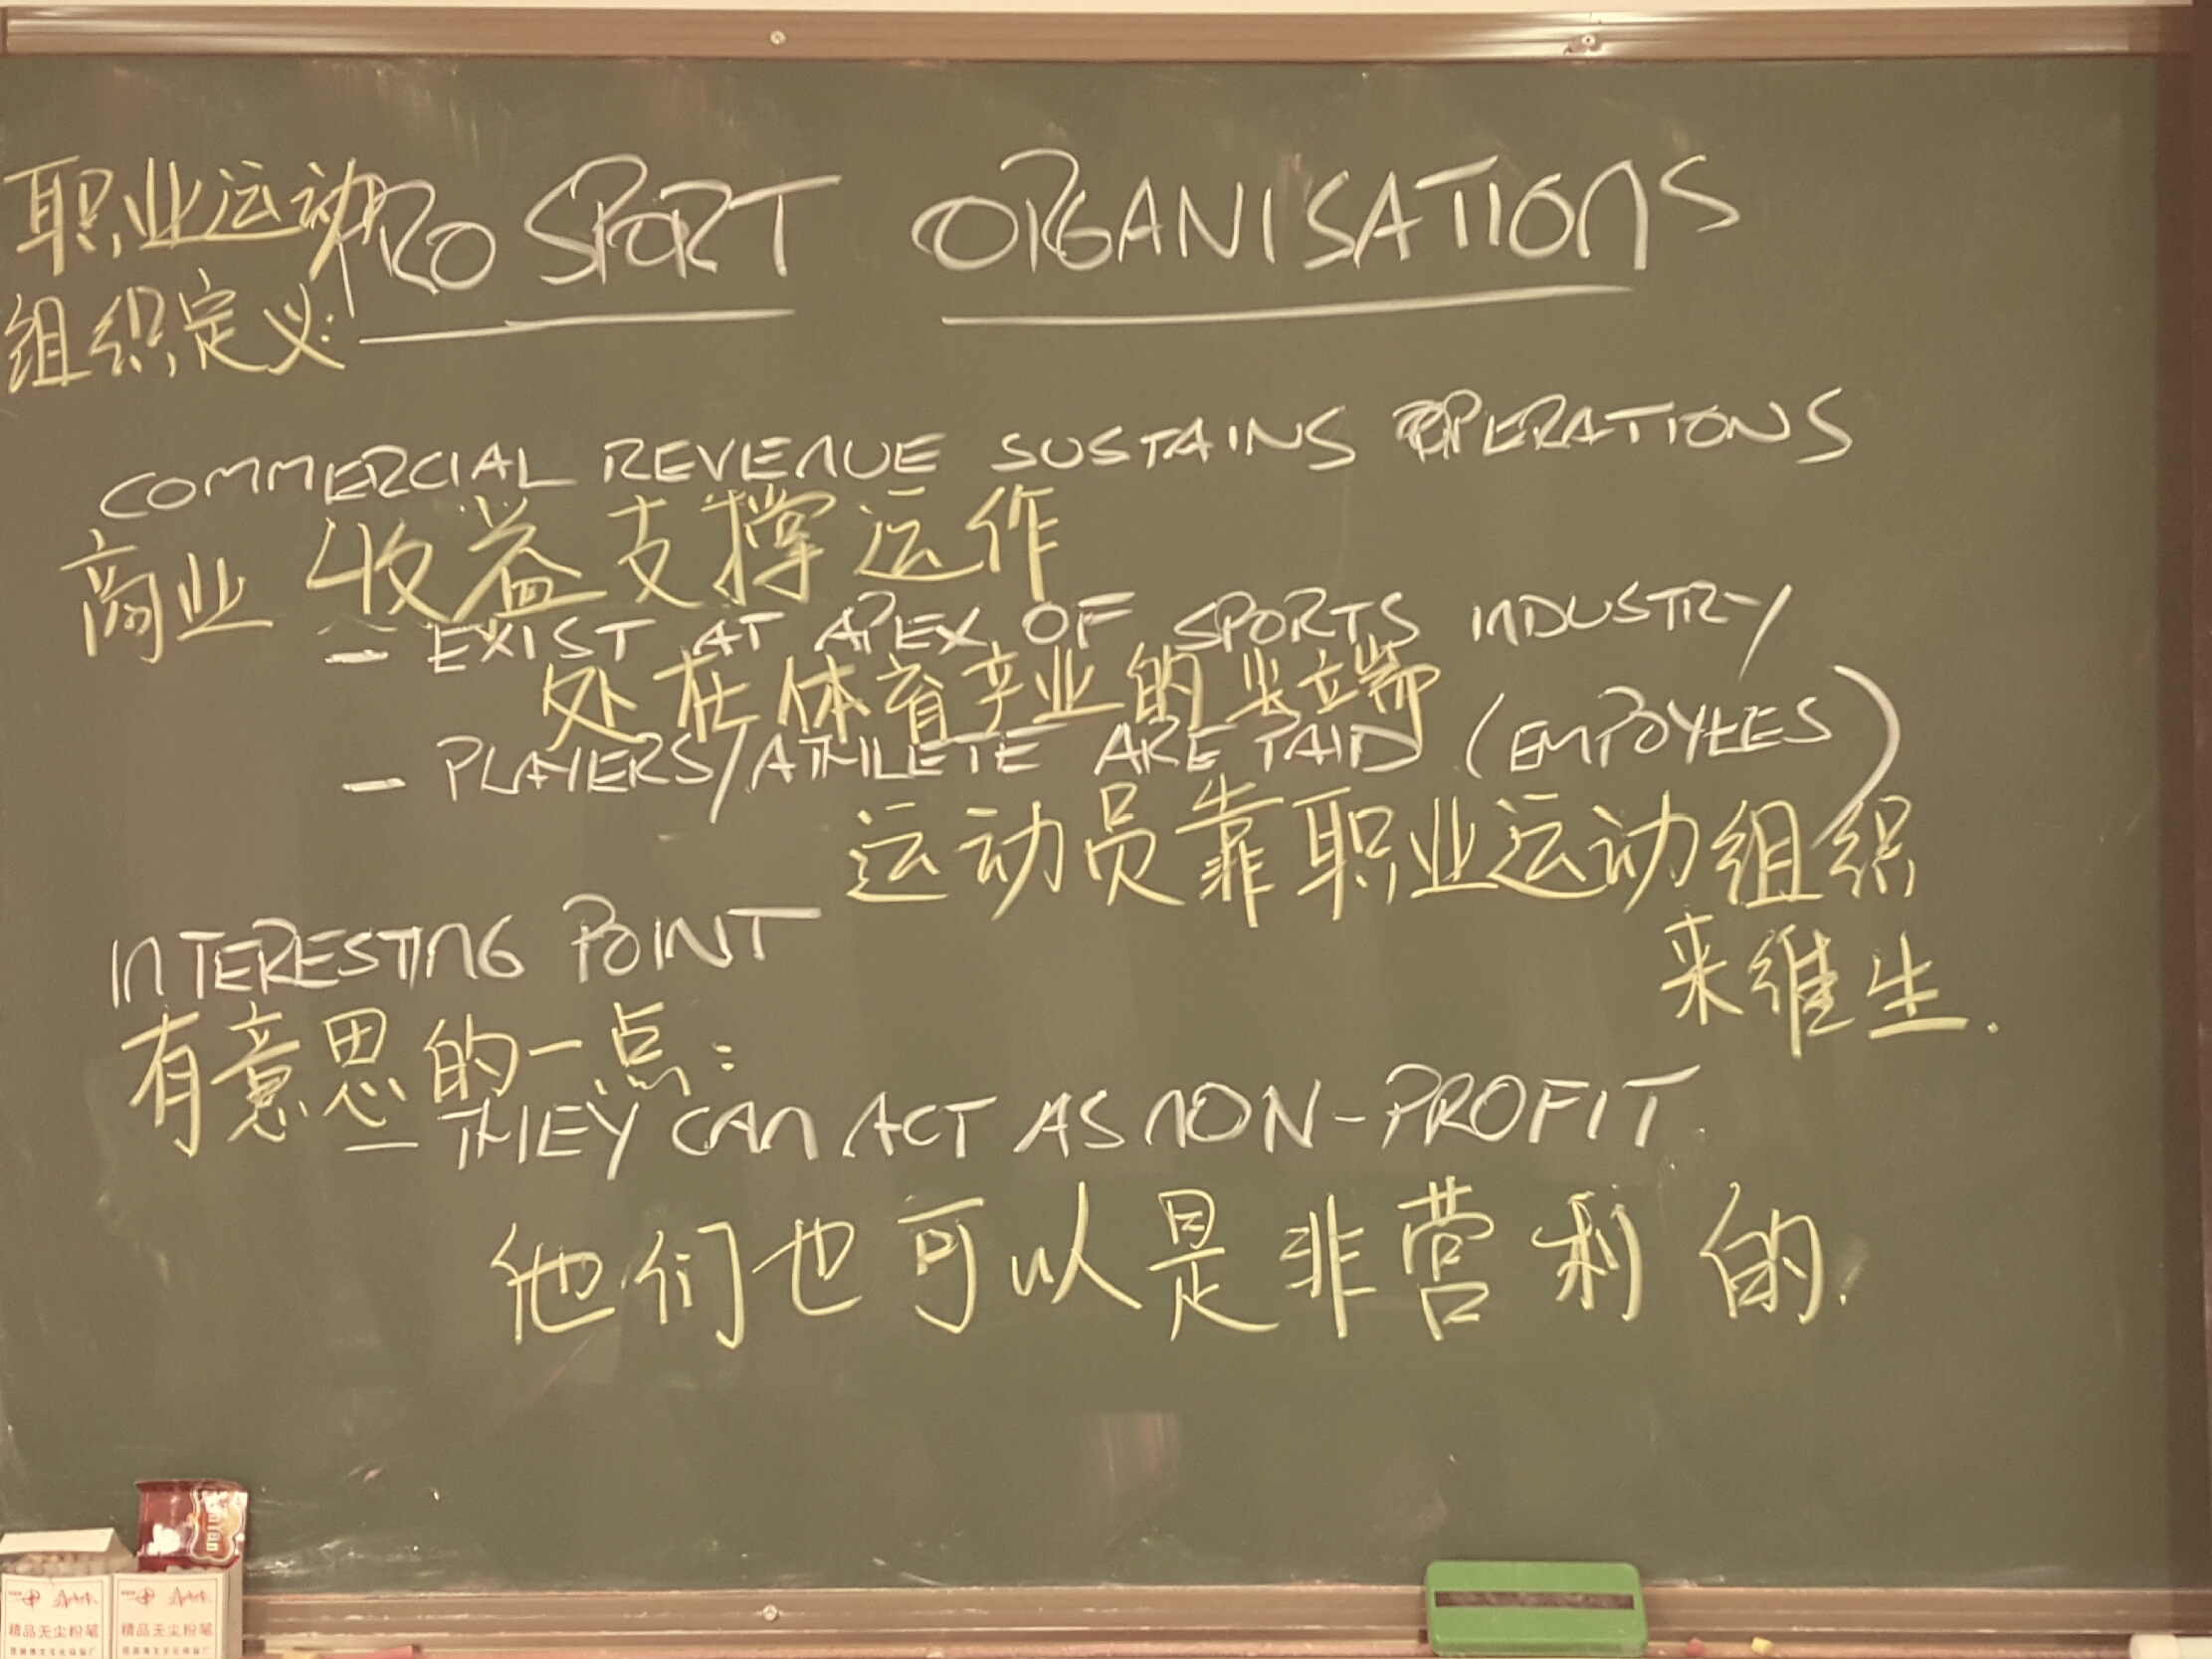 职业运动
PRO SPORT ORGANISATIONS
组织定义:
COMMERCIAL REVENUE SUSTAINS OPERATIONS
商业收益支撑运作
- EXIST AT APEX OF SPORTS INDUSTRY
处在体育产业的尖端
- PLAYERS/ATHLETE ARE PAID (EMPOYEES)
运动员靠职业运动组织
来维生.
INTERESTING POINT
有意思的一点:
- THEY CAN ACT AS NON-PROFIT.
他们也可以是非营利的.
精品无尘粉笔
精品无尘粉笔